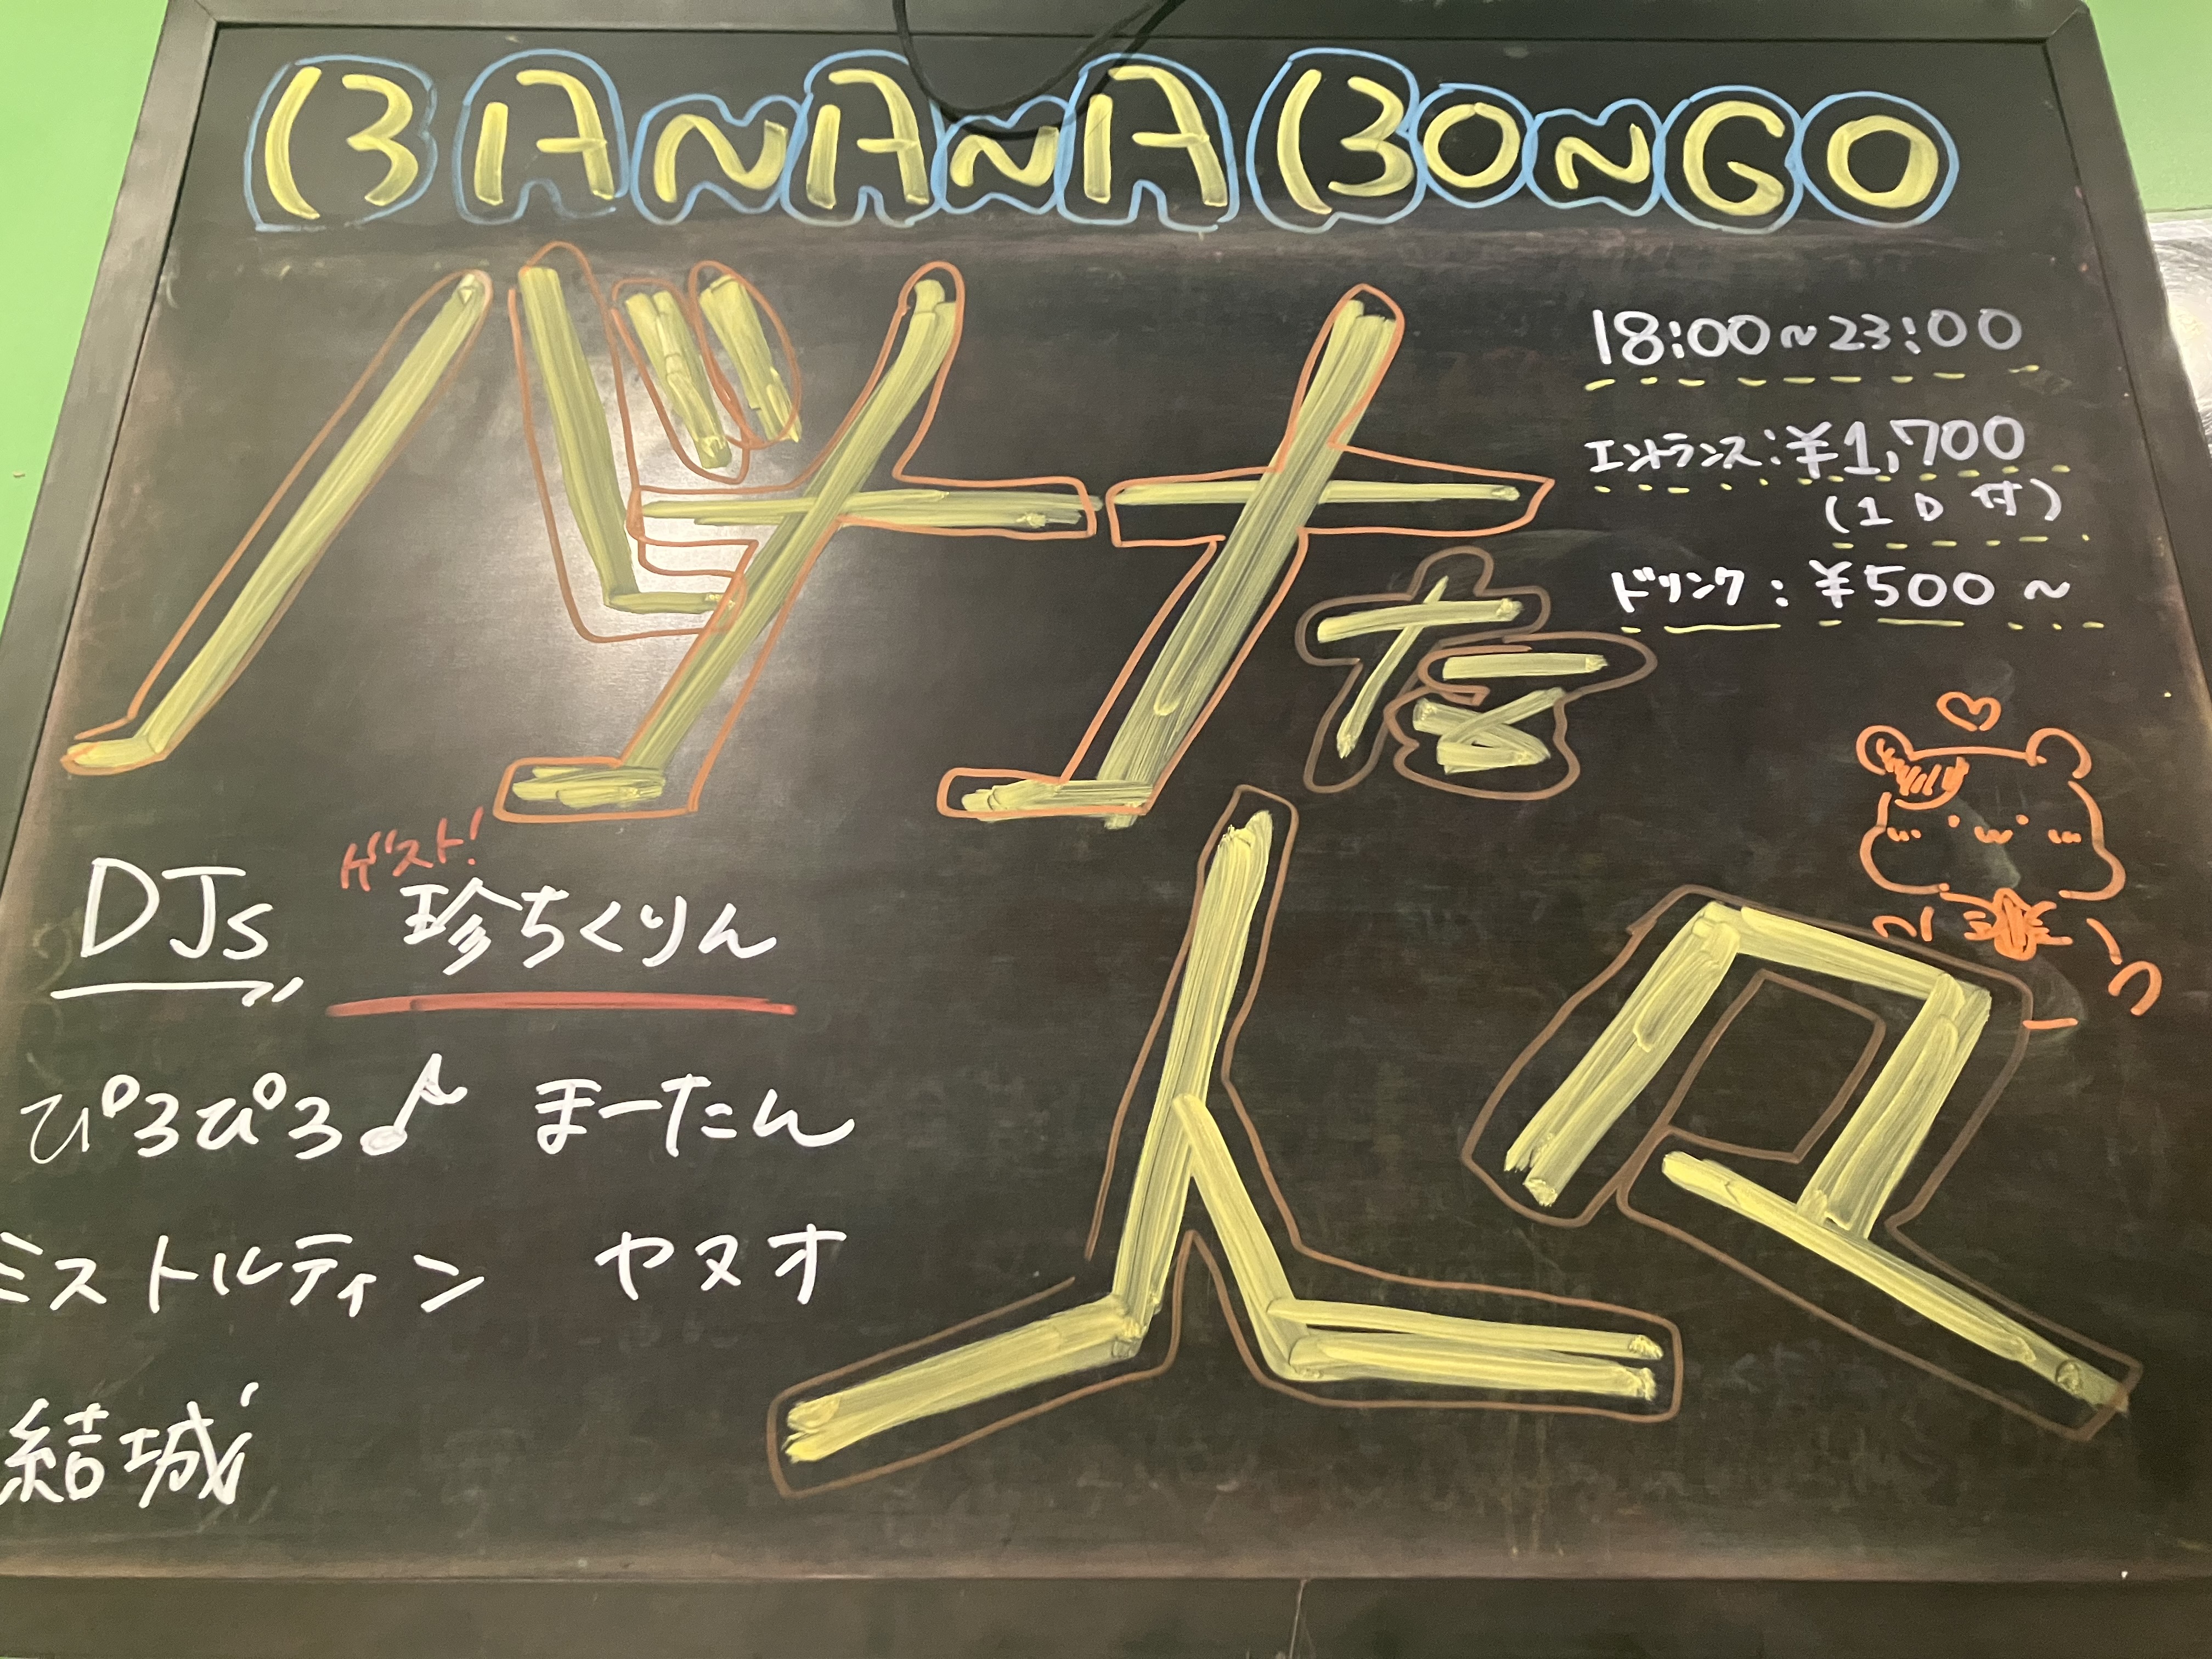 BANANA BONGO
バナナな
人々
18:00~23:00
エントランス:¥1,700
(1D付)
ドリンク:¥500~
ゲスト!
DJs 珍ちくりん
ぴろぴろ♪ まーたん
ミストルティン ヤヌオ
結城